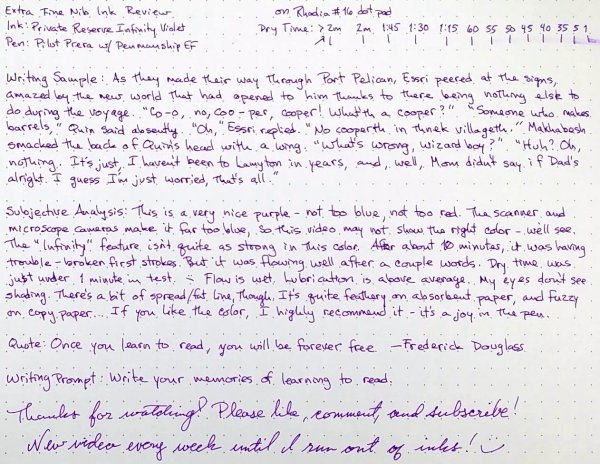 Extra Fine Nib Ink Review
on Rhodia #16 dot pad
Ink: Private Reserve Infinity Violet
Dry Time: >2m 2m 1:45 1:30 1:15 60 55 50 45 40 35 5 1
Pen: Pilot Prera w/ Penmanship EF
Writing Sample: As they made their way through Port Pelican, Essri peered at the signs,
amazed by the new world that had opened to him thanks to there being nothing else to
do during the voyage. "Co-o, no, coo-per, cooper! What'th a cooper?" "Someone who makes
barrels," Quin said absently. "Oh," Essri replied. "No cooperth in thnek villageth." Makhabesh
smacked the back of Quin's head with a wing. "What's wrong, wizard boy?" "Huh? Oh,
nothing. It's just, I haven't been to Lamyton in years, and, well, Mom didn't say if Dad's
alright. I guess I'm just worried, that's all."
Subjective Analysis: This is a very nice purple - not too blue, not too red. The scanner and
microscope cameras make it far too blue, so this video may not show the right color - we'll see.
The "Infinity" feature isn't quite as strong in this color. After about 10 minutes, it was having
trouble - broken first strokes. But it was flowing well after a couple words. Dry time was
just under 1 minute in test. Flow is wet. Lubrication is above average. My eyes don't see
shading. There's a bit of spread/fat line, though. It's quite feathery on absorbent paper, and fuzzy
on copy paper.... If you like the color, I highly recommend it - it's a joy in the pen.
Quote: Once you learn to read, you will be forever free. -Frederick Douglass
Writing Prompt: Write your memories of learning to read.
Thanks for watching! Please like, comment, and subscribe!
New video every week until I run out of inks!